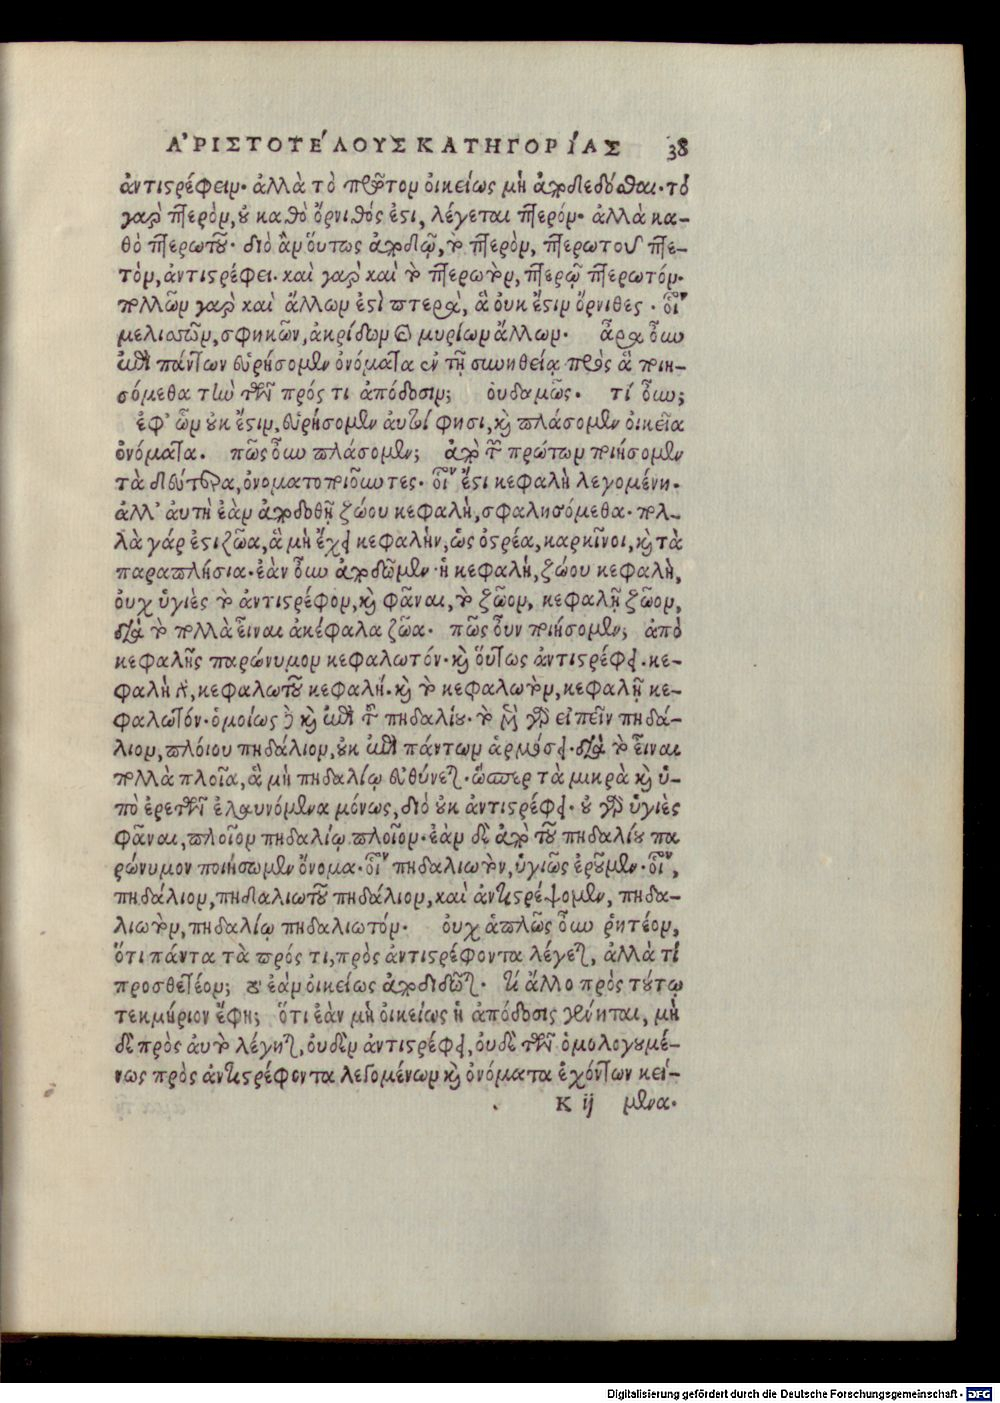 ἈΡΙΣΤΟΤΈΛΟΥΣ ΚΑΤΗΓΟΡΊΑΣ 38
ἀντιστρέφειν· ἀλλὰ τὸ πρῶτον οἰκείως μὴ ἀποδεδόσθαι· τὸ
γὰρ πτερὸν, οὐ καθὸ ὄρνιθός ἐστι, λέγεται πτερόν· ἀλλὰ κα-
θὸ πτερωτοῦ· διὸ ἂν ὅυτως ἀποδιδῷ, τὸ πτερὸν, πτερωτοῦ πτε-
ρὸν, ἀντιστρέφει· καὶ γὰρ καὶ τὸ πτερωτὸν, πτερῷ πτερωτόν·
πολλῶν γὰρ καὶ ἄλλων ἐστὶ πτερὰ, ἃ ὀυκ ἔστιν ὄρνιθες · οἷον
μελισσῶν, σφηκῶν, ἀκρίδων καὶ μυρίων ἄλλων· ἆρα ὀῦν
ἐπὶ πάντων εὑρήσομεν ὀνόματα ἐν τῇ συνηθείᾳ πρὸς ἃ ποιη-
σόμεθα τὴν τῶν πρός τι ἀπόδοσιν; ὀυδαμῶς· τί ὀῦν;
ἐφ' ὧν οὐκ ἔστιν, εὑρήσομεν ἀυτοί φησι, καὶ πλάσομεν οἰκεῖα
ὀνόματα. πῶς ὀῦν πλάσομεν; ἀπὸ τῶν πρώτων ποιήσομεν
τὰ δεύτερα, ὀνοματοποιοῦντες· οἷον ἔστι κεφαλὴ λεγομένη·
ἀλλ' ἀυτὴ ἐὰν ἀποδοθῇ ζώου κεφαλὴ, σφαλησόμεθα· πολ-
λὰ γάρ ἐστι ζῶα, ἃ μὴ ἔχει κεφαλὴν, ὡς ὀστρέα, καρκῖνοι, καὶ τὰ
παραπλήσια· ἐὰν ὀῦν ἀποδῶμεν ἡ κεφαλὴ, ζώου κεφαλὴ,
ὀυχ ὑγιὲς τὸ ἀντιστρέφον, καὶ φᾶναι, τὸ ζῶον, κεφαλῇ ζῶον,
διὰ τὸ πολλὰ εἶναι ἀκέφαλα ζῶα· πῶς ὀῦν ποιήσομεν; ἀπὸ
κεφαλῆς παρώνυμον κεφαλωτόν· καὶ ὅυτως ἀντιστρέφει· κε-
φαλὴ γὰρ, κεφαλωτοῦ κεφαλή· καὶ τὸ κεφαλωτὸν, κεφαλῇ κε-
φαλωτόν· ὁμοίως δὲ καὶ ἐπὶ τοῦ πηδαλίου· τὸ μὲν γὰρ εἰπεῖν πηδά-
λιον, πλόιου πηδάλιον, οὐκ ἐπὶ πάντων ἁρμόσει· διὰ τὸ εἶναι
πολλὰ πλοῖα, ἃ μὴ πηδαλίῳ εὐθύνεται· ὥσπερ τὰ μικρὰ καὶ ὑ-
πὸ ἐρετῶν ἐλαυνόμενα μόνως, διὸ οὐκ ἀντιστρέφει· οὐ γὰρ ὑγιὲς
φᾶναι, πλοῖον πηδαλίῳ πλοῖον· ἐὰν δὲ ἀπὸ τοῦ πηδαλίου πα
ρώνυμον ποιήσωμεν ὄνομα· οἷον πηδαλιωτὸν, ὑγιῶς ἐροῦμεν· οἷον,
πηδάλιον, πηδαλιωτοῦ πηδάλιον, καὶ ἀντιστρέψομεν, πηδα-
λιωτὸν, πηδαλίῳ πηδαλιωτόν· ὀυχ ἁπλῶς ὀῦν ῥητέον,
ὅτι πάντα τὰ πρός τι, πρὸς ἀντιστρέφοντα λέγεται, ἀλλὰ τί
προσθετέον; τὸ ἐὰν οἰκείως ἀποδιδῶται· τί ἄλλο πρὸς τούτῳ
τεκμήριον ἔφη; ὅτι ἐὰν μὴ οἰκείως ἡ ἀπόδοσις γένηται, μὴ
δὲ πρὸς ἀυτὸ λέγηται, ὀυδὲν ἀντιστρέφει, ὀυδὲ τῶν ὁμολογουμέ-
νως πρὸς ἀντιστρέφοντα λεγομένων καὶ ὀνόματα ἐχόντων κεί-
K ij μενα·
Digitalisierung gefördert durch die Deutsche Forschungsgemeinschaft · DFG